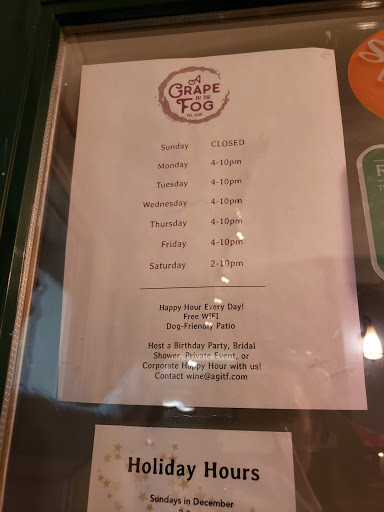 A
GRAPE
IN THE
FOG
Sunday CLOSED
Monday 4-10pm
Tuesday 4-10pm
Wednesday 4-10pm
Thursday 4-10pm
Friday 4-10pm
Saturday 2-10pm
Happy Hour Every Day!
Free WIFI
Dog-Friendly Patio
Host a Birthday Party, Bridal
Shower, Private Event, or
Corporate Happy Hour with us!
Contact wine@agitf.com
Holiday Hours
Sundays in December